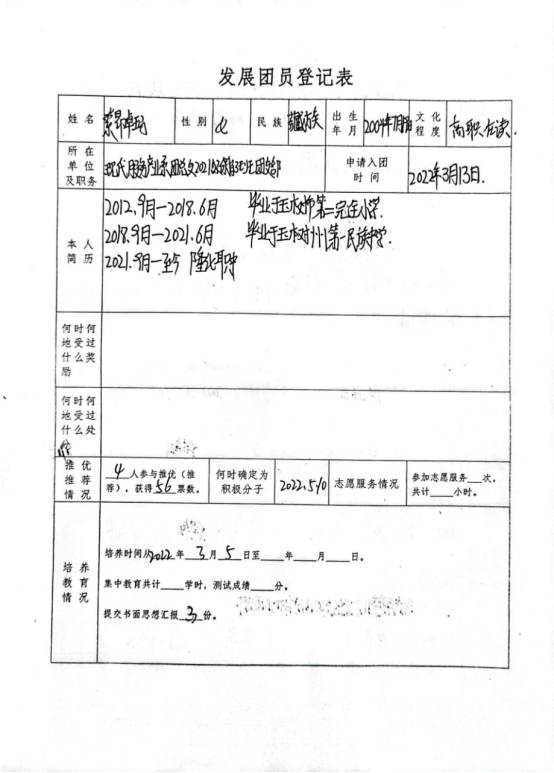 发展团员登记表
姓名 性别 女 民族 藏族 出生年月 文化程度 高职在读.
所在单位及职务 申请入团时间 2022年3月13日.
本人简历
2012.9月—2018.6月 毕业于玉树市第二完全小学.
2018.9月—2021.6月 毕业于玉树州第一民族中学.
2021.9月—至今
何时何地受过什么奖励
何时何地受过什么处分
推优推荐情况 4 人参与推优(推荐),获得 56 票数。 何时确定为积极分子 2022.5/0 志愿服务情况 参加志愿服务___次,共计____小时。
培养教育情况
培养时间从2022年 3 月 5 日至___年___月___日。
集中教育共计____学时,测试成绩____分。
提交书面思想汇报 3 份。